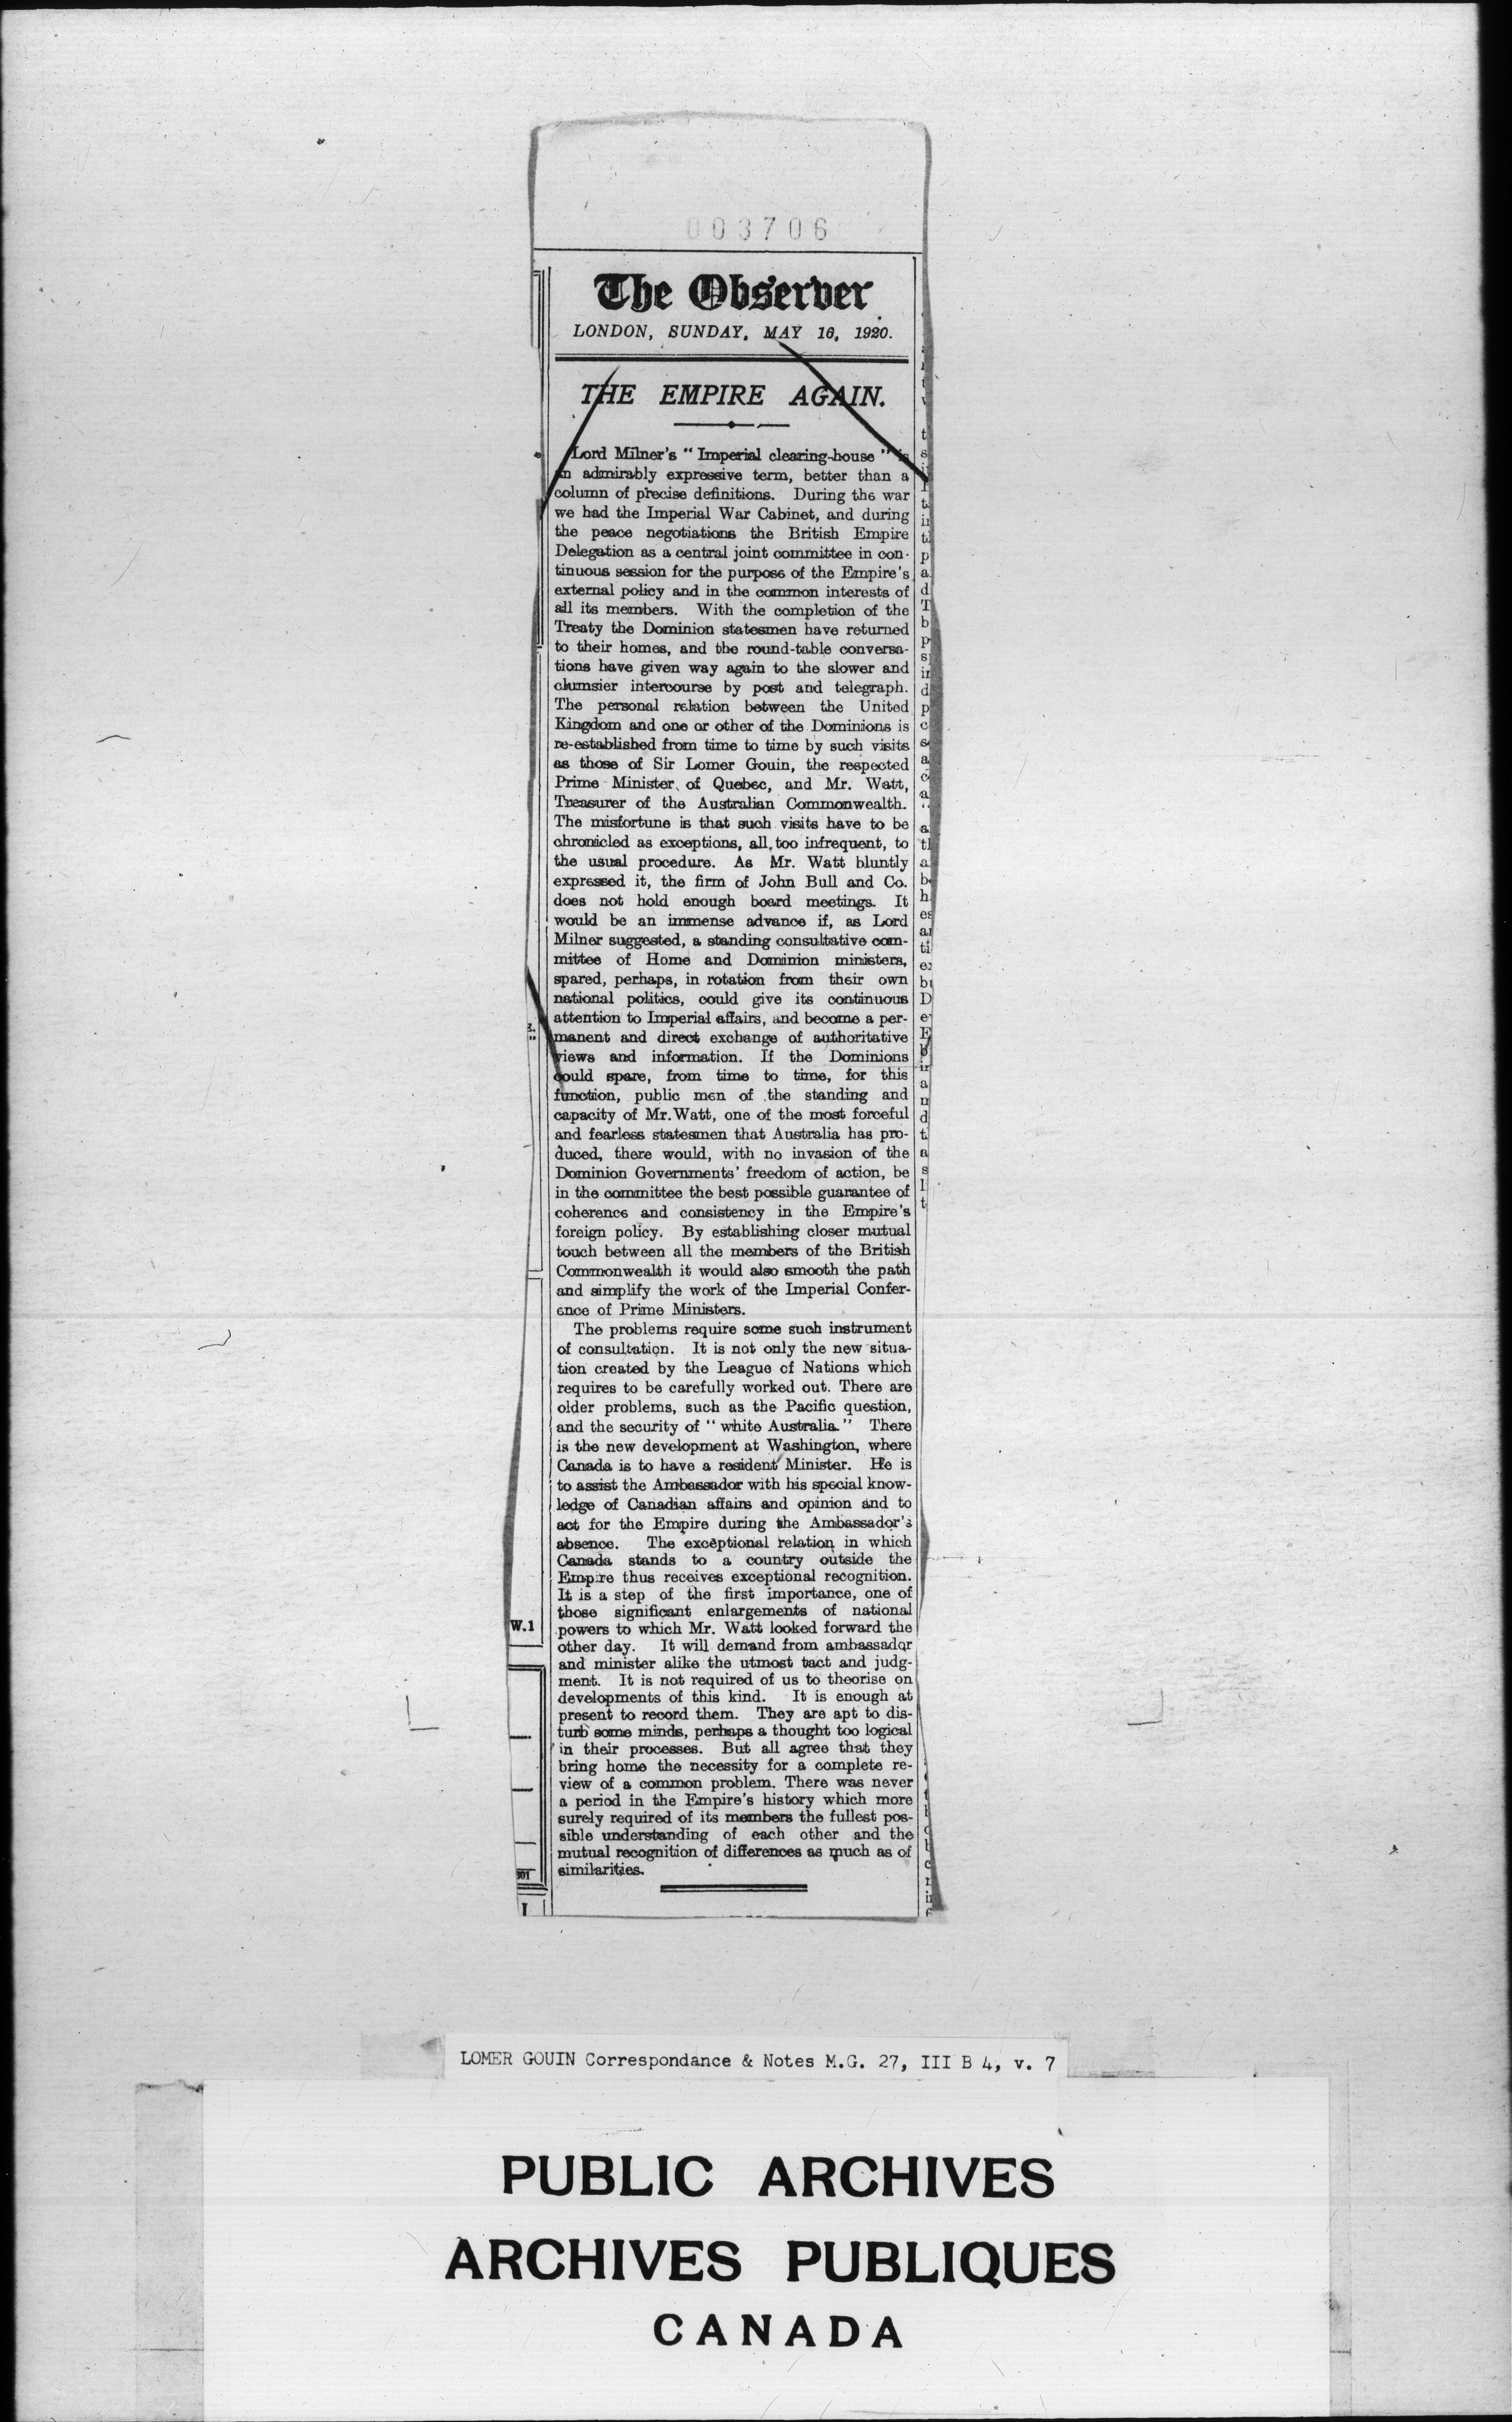 003706
The Observer
LONDON, SUNDAY, MAY 16, 1920.
THE EMPIRE AGAIN.
Lord Milner's "Imperial clearing-house" is
an admirably expressive term, better than a
column of precise definitions. During the war
we had the Imperial War Cabinet, and during
the peace negotiations the British Empire
Delegation as a central joint committee in con-
tinuous session for the purpose of the Empire's
external policy and in the common interests of
all its members. With the completion of the
Treaty the Dominion statesmen have returned
to their homes, and the round-table conversa-
tions have given way again to the slower and
clumsier intercourse by post and telegraph.
The personal relation between the United
Kingdom and one or other of the Dominions is
re-established from time to time by such visits
as those of Sir Lomer Gouin, the respected
Prime Minister of Quebec, and Mr. Watt,
Treasurer of the Australian Commonwealth.
The misfortune is that such visits have to be
chronicled as exceptions, all too infrequent, to
the usual procedure. As Mr. Watt bluntly
expressed it, the firm of John Bull and Co.
does not hold enough board meetings. It
would be an immense advance if, as Lord
Milner suggested, a standing consultative com-
mittee of Home and Dominion ministers,
spared, perhaps, in rotation from their own
national politics, could give its continuous
attention to Imperial affairs, and become a per-
manent and direct exchange of authoritative
views and information. If the Dominions
could spare, from time to time, for this
function, public men of the standing and
capacity of Mr. Watt, one of the most forceful
and fearless statesmen that Australia has pro-
duced, there would, with no invasion of the
Dominion Governments' freedom of action, be
in the committee the best possible guarantee of
coherence and consistency in the Empire's
foreign policy. By establishing closer mutual
touch between all the members of the British
Commonwealth it would also smooth the path
and simplify the work of the Imperial Confer-
ence of Prime Ministers.
The problems require some such instrument
of consultation. It is not only the new situa-
tion created by the League of Nations which
requires to be carefully worked out. There are
older problems, such as the Pacific question,
and the security of "white Australia." There
is the new development at Washington, where
Canada is to have a resident Minister. He is
to assist the Ambassador with his special know-
ledge of Canadian affairs and opinion and to
act for the Empire during the Ambassador's
absence. The exceptional relation in which
Canada stands to a country outside the
Empire thus receives exceptional recognition.
It is a step of the first importance, one of
those significant enlargements of national
powers to which Mr. Watt looked forward the
other day. It will demand from ambassador
and minister alike the utmost tact and judg-
ment. It is not required of us to theorise on
developments of this kind. It is enough at
present to record them. They are apt to dis-
turb some minds, perhaps a thought too logical
in their processes. But all agree that they
bring home the necessity for a complete re-
view of a common problem. There was never
a period in the Empire's history which more
surely required of its members the fullest pos-
sible understanding of each other and the
mutual recognition of differences as much as of
similarities.
W.1
LOMER GOUIN Correspondance & Notes M.G. 27, III B 4, v. 7
PUBLIC ARCHIVES
ARCHIVES PUBLIQUES
CANADA